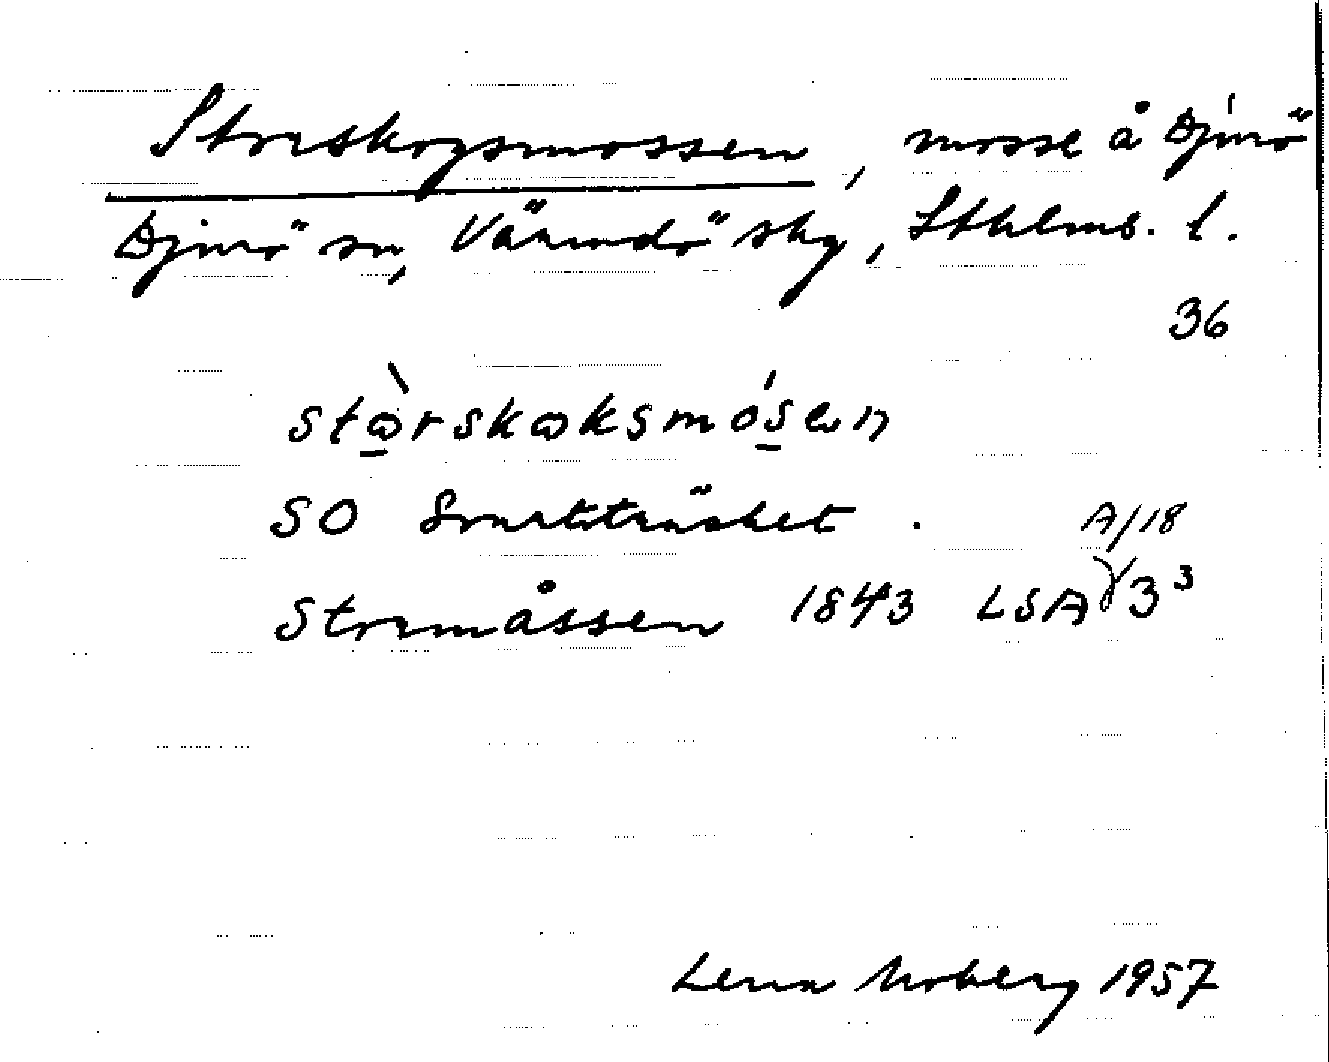 Storskogsmossen, mosse å Djurö
Djurö sn, Värmdö skg, Sthlms. l.
36
stɷ̀rskɷksmósən
SO Svartträsket. A/18
Stormåssen 1843 LSA γ3³
Lena Moberg 1957